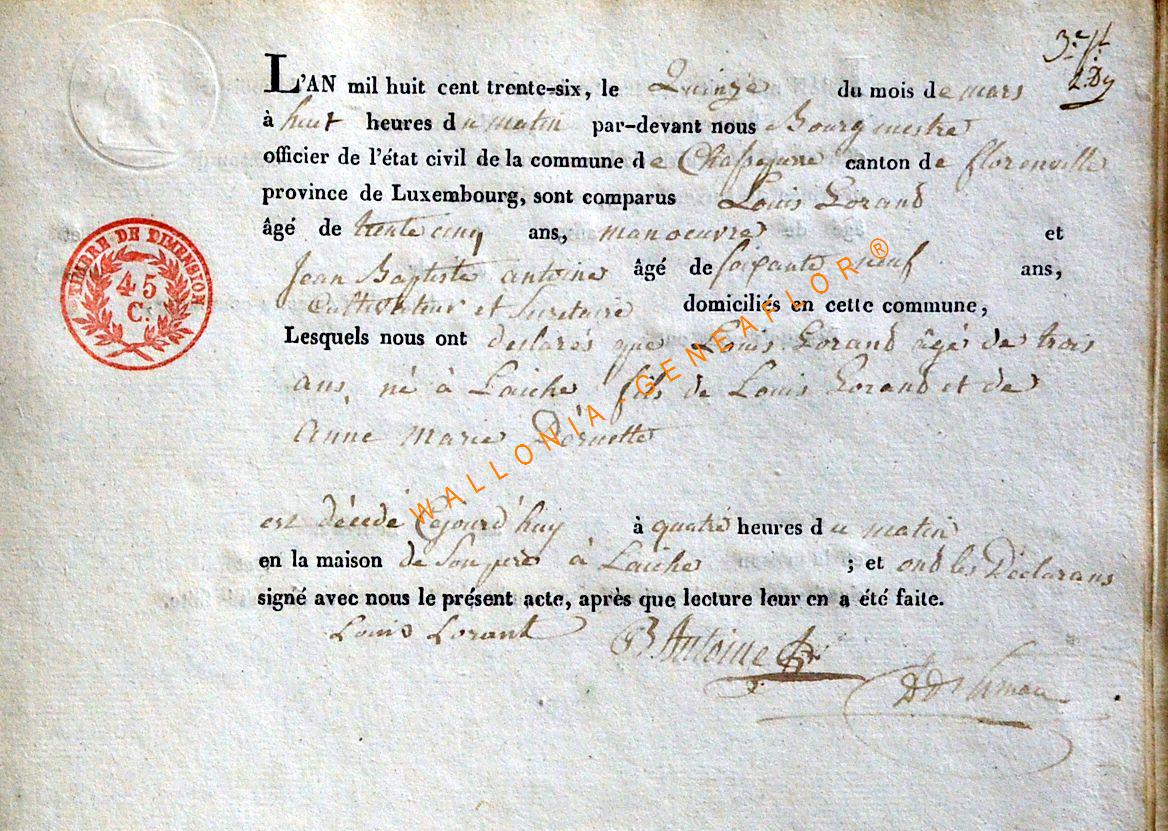 3.e ft
L.Dy
L'AN mil huit cent trente-six, le Quinze du mois de mars
à huit heures du matin par-devant nous Bourgmestre
officier de l'état civil de la commune de Chassepierre canton de florenville
province de Luxembourg, sont comparus Louis Lorand
âgé de trente cinq ans, manoeuvre et
Jean Baptiste antoine âgé de soixante neuf ans,
Cultivateur et Secretaire domiciliés en cette commune,
Lesquels nous ont declarés que Louis Lorand âgé de trois
ans, né à Laiche fils de Louis Lorand et de
Anne Marie
est décédé Cejourd'huy à quatre heures du matin
en la maison de Son pere à Laiche ; et ond les Déclarans
signé avec nous le présent acte, après que lecture leur en a été faite.
Louis Lorant JB Antoine
TIMBRE DE DIMENSION
45
C.
WALLONIA-GENEAFLOR®